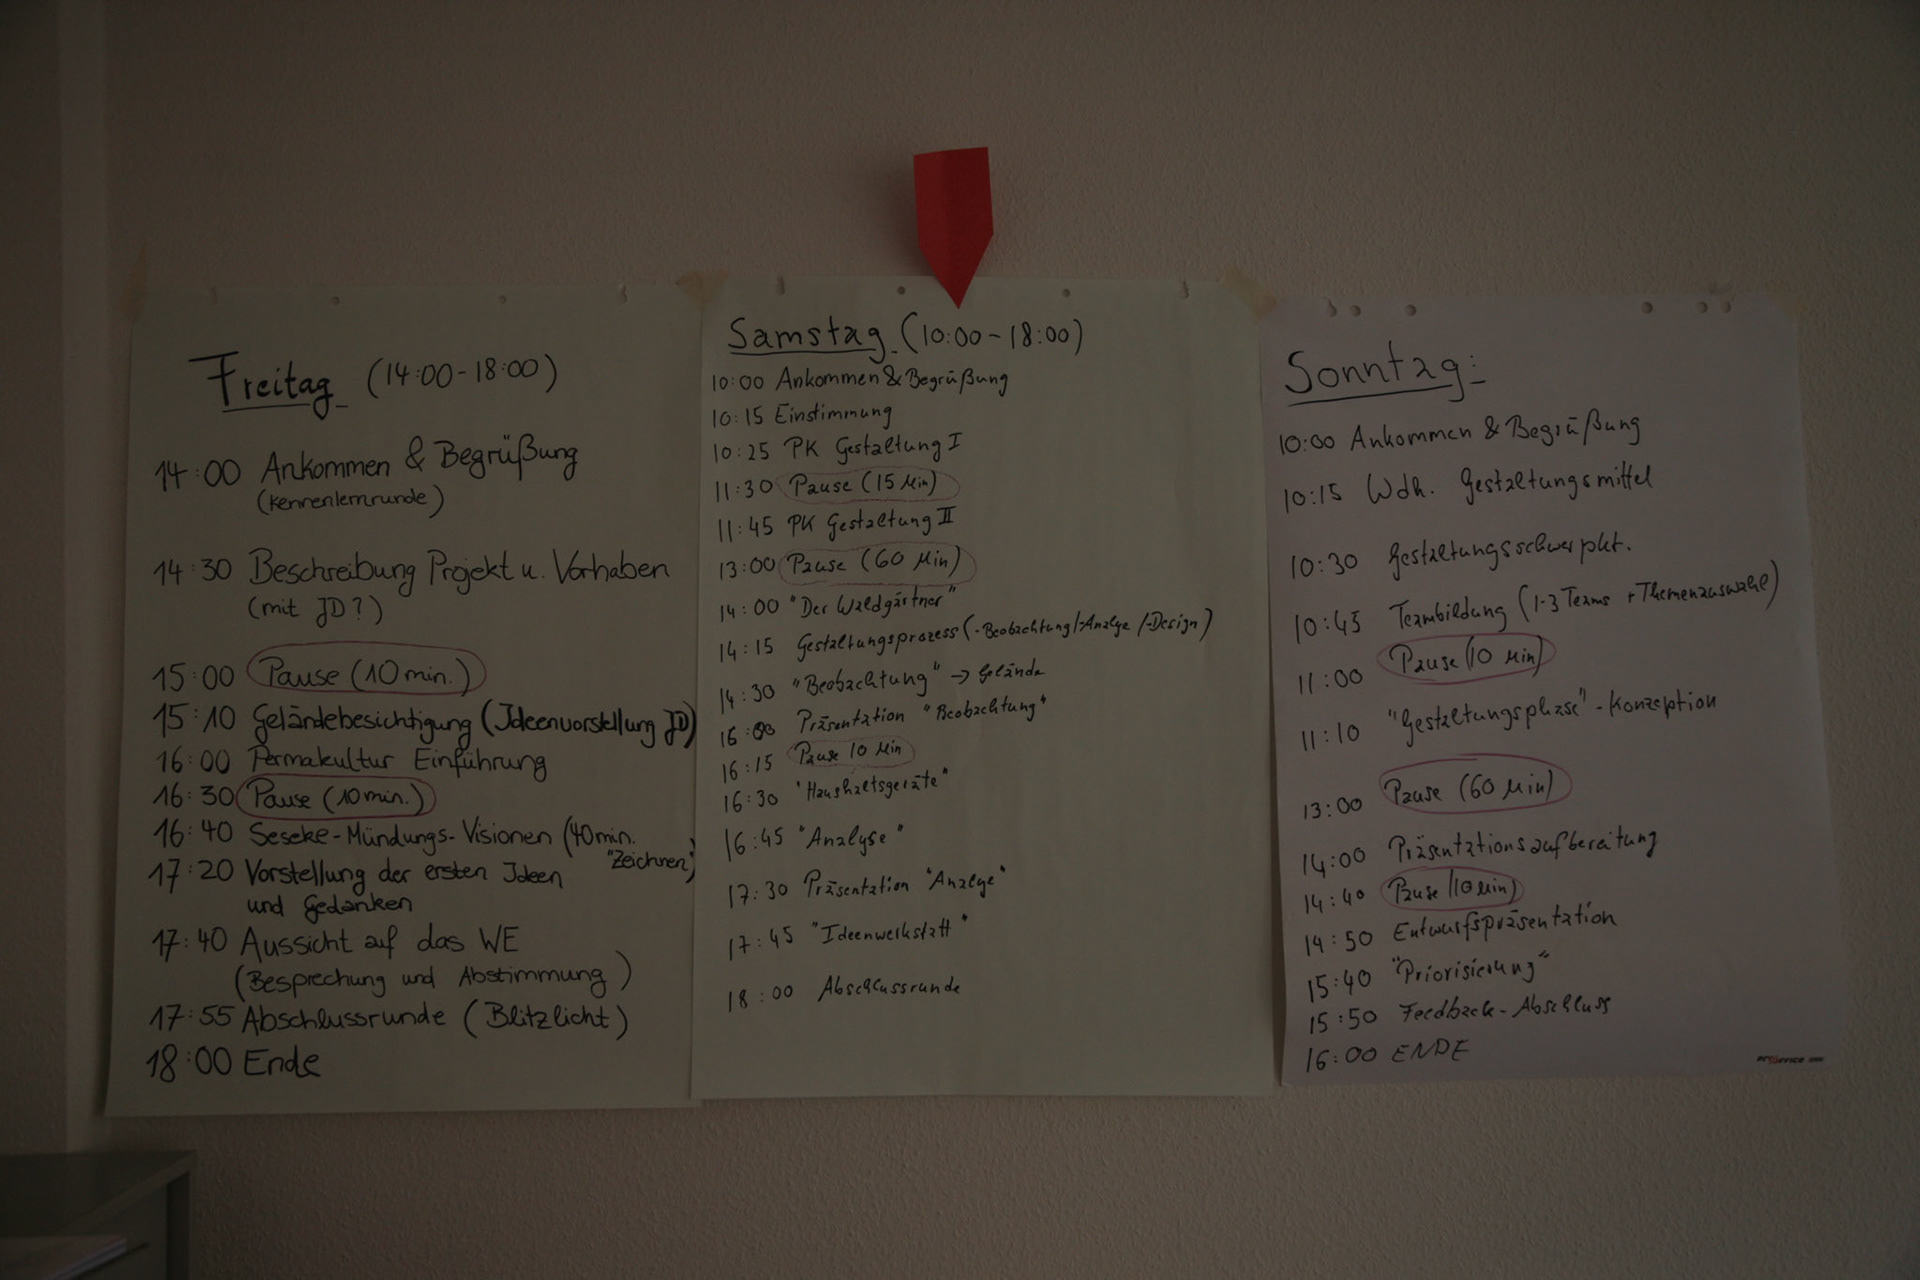 Freitag (14:00-18:00)
14:00 Ankommen & Begrüßung
(Kennenlernrunde)
14:30 Beschreibung Projekt u. Vorhaben
(mit JD?)
15:00 Pause (10 min.)
15:10 Geländebesichtigung (Ideenvorstellung JD)
16:00 Permakultur Einführung
16:30 Pause (10 min.)
16:40 Seseke-Mündungs-Visionen (40 min.
"Zeichnen")
17:20 Vorstellung der ersten Ideen
und Gedanken
17:40 Aussicht auf das WE
(Besprechung und Abstimmung)
17:55 Abschlussrunde (Blitzlicht)
18:00 Ende
Samstag (10:00-18:00)
10:00 Ankommen & Begrüßung
10:15 Einstimmung
10:25 PK Gestaltung I
11:30 Pause (15 Min)
11:45 PK Gestaltung II
13:00 Pause (60 Min)
14:00 "Der Waldgärtner"
14:15 Gestaltungsprozess (-Beobachtung/-Analye/-Design)
14:30 "Beobachtung" → Gelände
16:00 Präsentation "Beobachtung"
16:15 Pause 10 Min
16:30 "Haushaltsgeräte"
16:45 "Analyse"
17:30 Präsentation "Analye"
17:45 "Ideenwerkstatt"
18:00 Abschlussrunde
Sonntag:
10:00 Ankommen & Begrüßung
10:15 Wdh. Gestaltungsmittel
10:30 Gestaltungsschwerpkt.
10:45 Teambildung (1-3 Teams + Themenauswahl)
11:00 Pause (10 Min)
11:10 "Gestaltungsphase" - Konzeption
13:00 Pause (60 Min)
14:00 Präsentationsaufbereitung
14:40 Pause (10 Min)
14:50 Entwurfspräsentation
15:40 "Priorisierung"
15:50 Feedback - Abschluss
16:00 ENDE